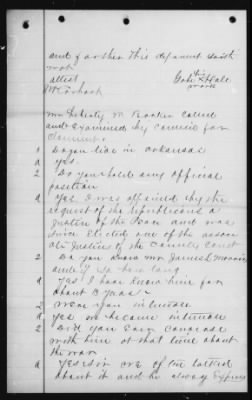 and further this deponent saith
not
attest Gabe his Hall
mark
Mr Liberty M Booker called
and examined by council for
Q Do you live in Arkansas
A yes
Q Do you hold any official
position
A Yes I was appointed by the
request of the Republicans a
Justice of the Peace and was
since Elected one of the associ
ate Justices of the County Court
Q Do you know Mr James L Morris
and if so how long
A Yes I have known him for
about 6 years
Q Were you intimate
A yes we became intimate
Q Did you Ever converse
with him at that time about
the war
A Yes sir we often talked
about it and he always Express